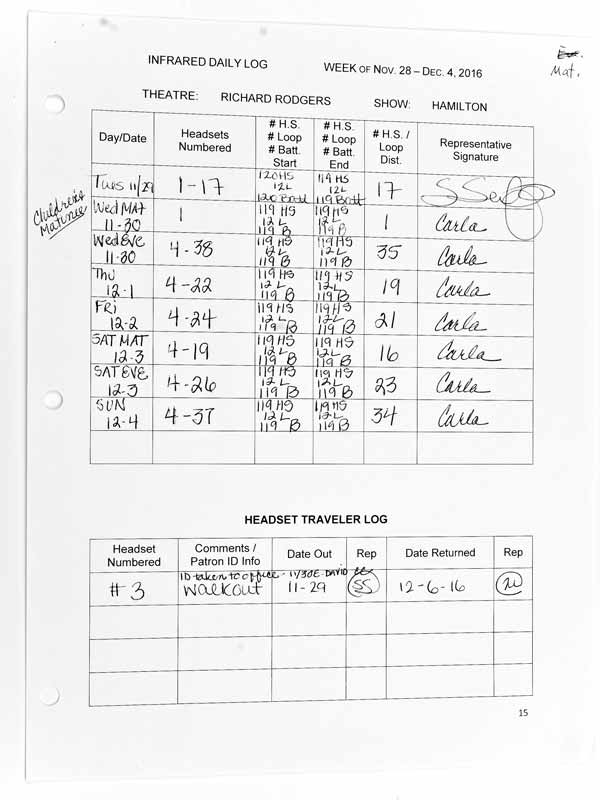 Mat.
INFRARED DAILY LOG WEEK OF NOV. 28 – DEC. 4, 2016
THEATRE: RICHARD RODGERS SHOW: HAMILTON
Day/Date Headsets Numbered # H.S. # Loop # Batt. Start # H.S. # Loop # Batt. End # H.S. / Loop Dist. Representative Signature
Tues 11/29 1-17 120 HS 12L 120 Batt 119 HS 12L 119 Batt 17
Children's Matinee
Wed MAT 11-30 1 119 HS 12 L 119 B 119 HS 12 L 119 B 1 Carla
Wed EVE 11-30 4-38 119 HS 12 L 119 B 119 HS 12 L 119 B 35 Carla
Thu 12-1 4-22 119 HS 12 L 119 B 119 HS 12 L 119 B 19 Carla
FRI 12-2 4-24 119 HS 12 L 119 B 119 HS 12 L 119 B 21 Carla
SAT MAT 12-3 4-19 119 HS 12 L 119 B 119 HS 12 L 119 B 16 Carla
SAT EVE 12-3 4-26 119 HS 12 L 119 B 119 HS 12 L 119 B 23 Carla
SUN 12-4 4-37 119 HS 12 L 119 B 119 HS 12 L 119 B 34 Carla
HEADSET TRAVELER LOG
Headset Numbered Comments / Patron ID Info Date Out Rep Date Returned Rep
ID taken to office - 11/30 E. DAVID
# 3 Walkout 11-29 SS 12-6-16
15